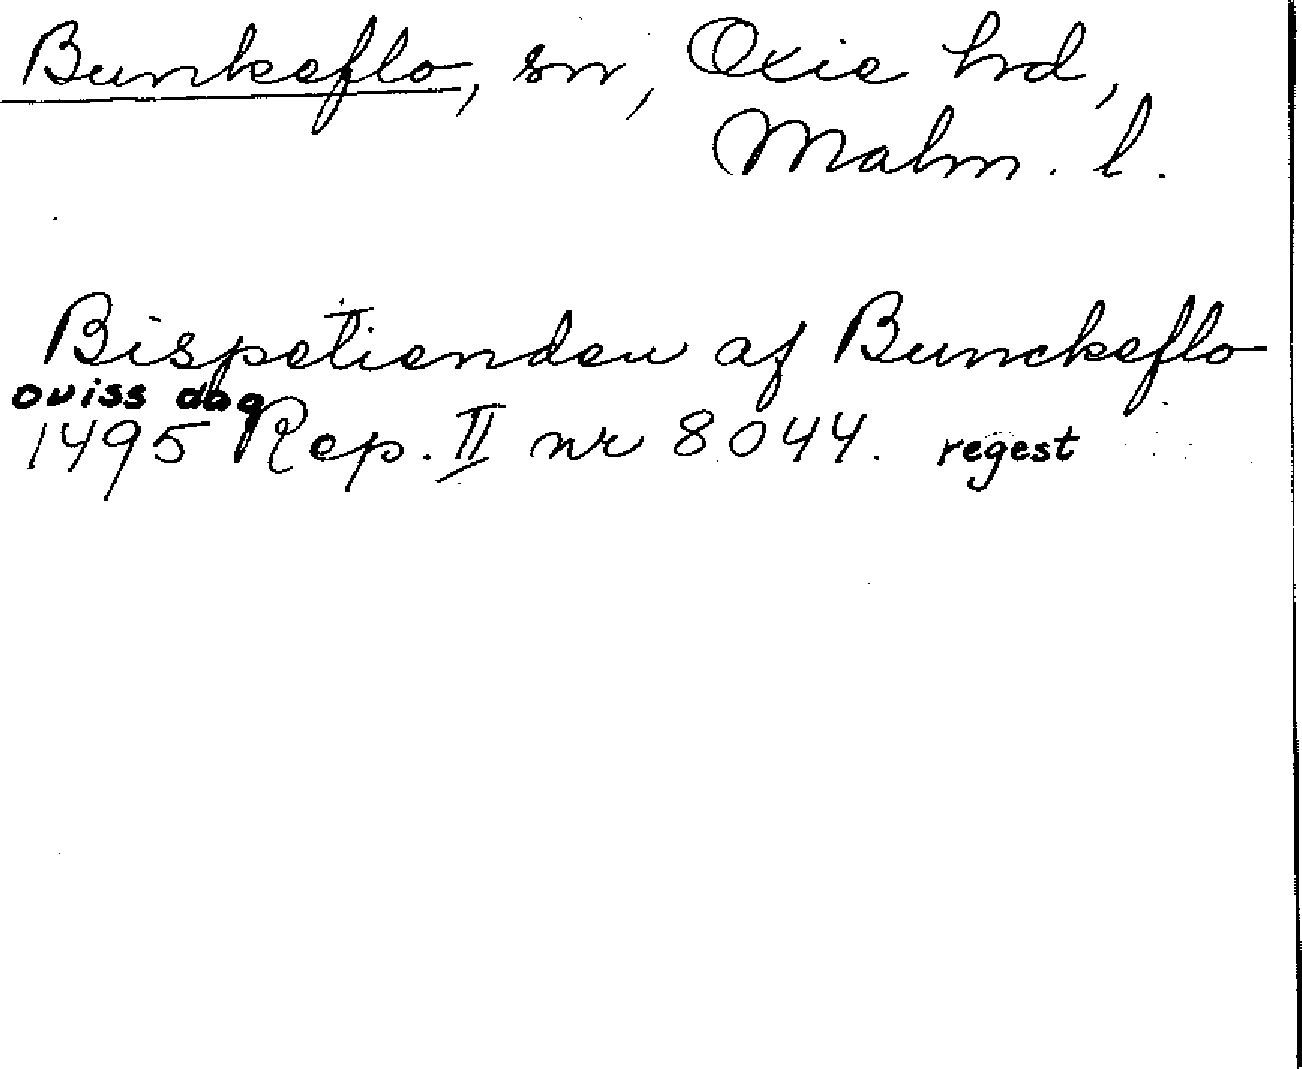 Bunkeflo, sn, Oxie hrd,
Malm. l.
Bispetienden af Bunckeflo
oviss dag
1495 Rep. II nr 8044. regest